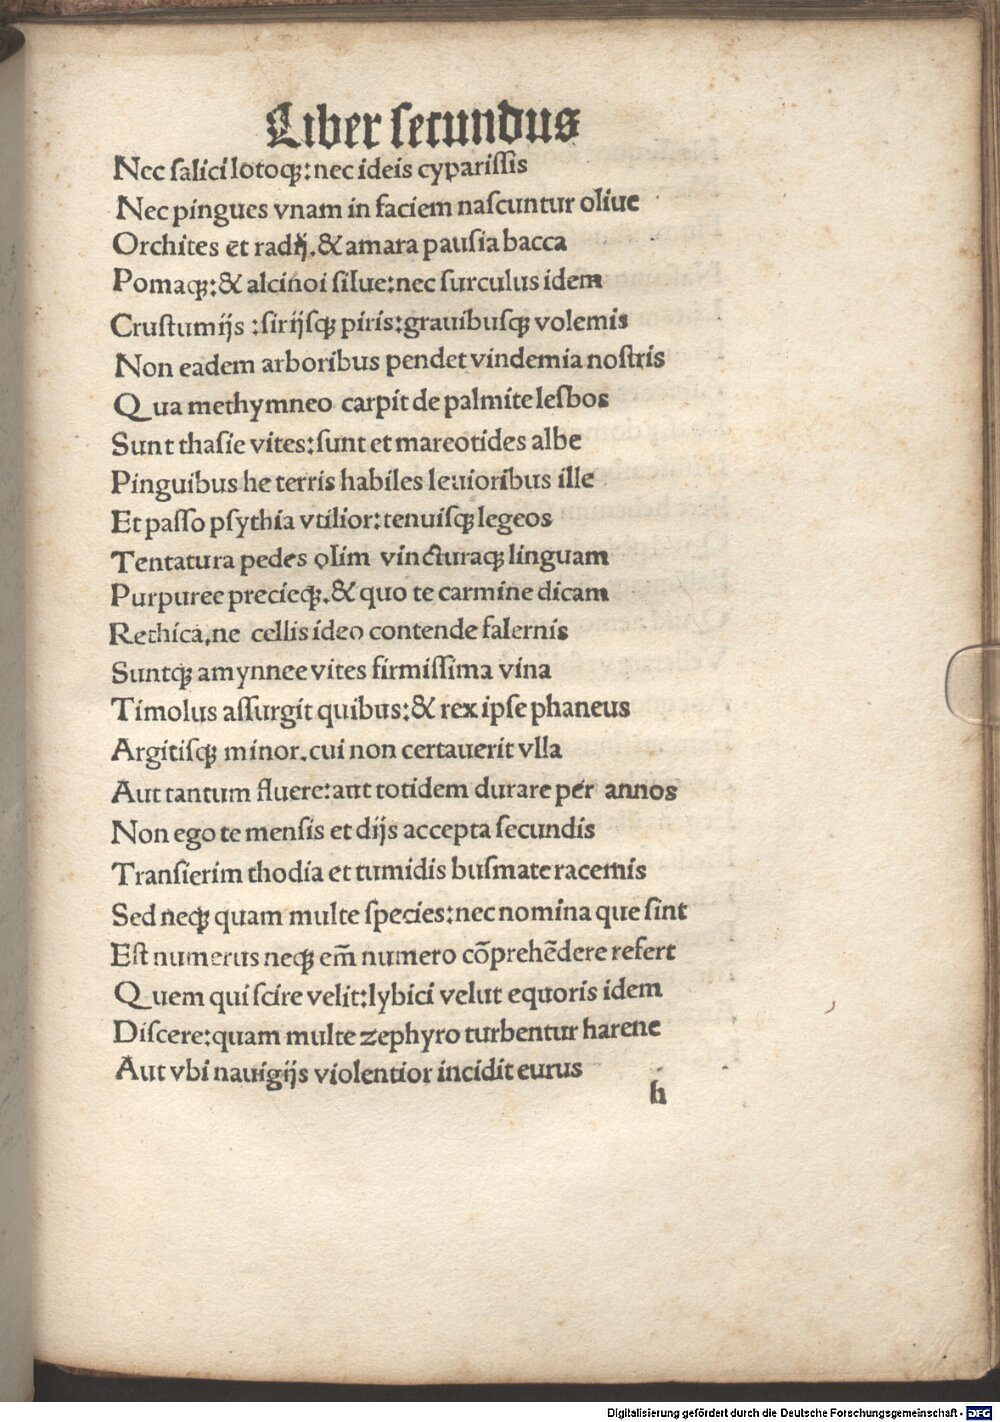 Liber ſecundus
Nec ſalici lotoqꝫ: nec ideis cypariſſis
Nec pingues vnam in faciem naſcuntur oliue
Orchites et radij. & amara pauſia bacca
Pomaqꝫ: & alcinoi ſilue: nec ſurculus idem
Cruſtumijs : ſirijſqꝫ piris: grauibuſqꝫ volemis
Non eadem arboribus pendet vindemia noſtris
Qua methymneo carpit de palmite leſbos
Sunt thaſie vites: ſunt et mareotides albe
Pinguibus he terris habiles leuioribus ille
Et paſſo pſythia vtilior: tenuiſqꝫ legeos
Tentatura pedes olim vincturaqꝫ linguam
Purpuree precieqꝫ. & quo te carmine dicam
Rethica, ne cellis ideo contende falernis
Suntqꝫ amynnee vites firmiſſima vina
Timolus aſſurgit quibus: & rex ipſe phaneus
Argitiſqꝫ minor. cui non certauerit vlla
Aut tantum fluere: aut totidem durare per annos
Non ego te menſis et dijs accepta ſecundis
Tranſierim thodia et tumidis buſmate racemis
Sed neqꝫ quam multe ſpecies: nec nomina que ſint
Eſt numerus neqꝫ em̄ numero cōprehēdere refert
Quem qui ſcire velit: lybici velut equoris idem
Diſcere: quam multe zephyro turbentur harene
Aut vbi nauigijs violentior incidit eurus
h
Digitalisierung gefördert durch die Deutsche Forschungsgemeinschaft - DFG